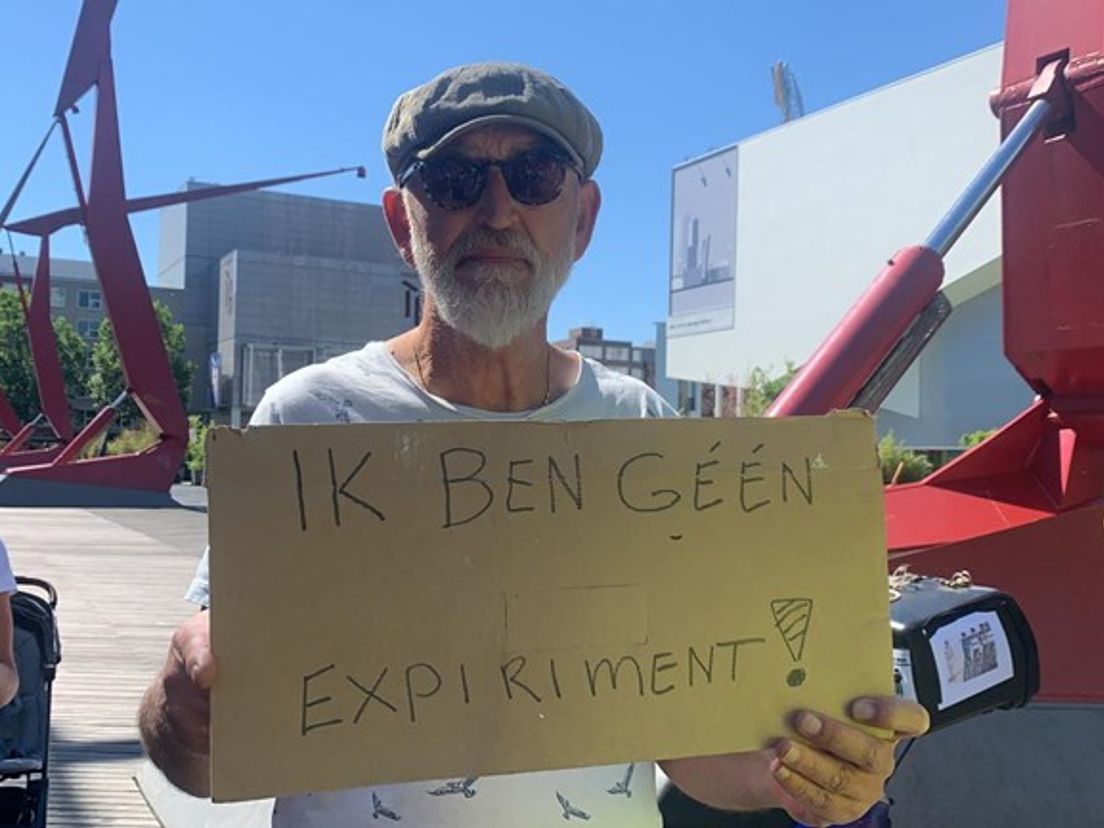 IK BEN GÉÉN
EXPIRIMENT!